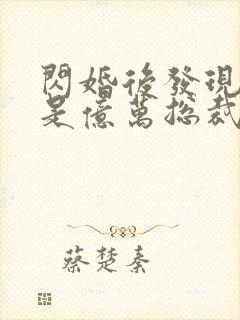 閃婚後發現
是億萬總裁
蔡楚秦